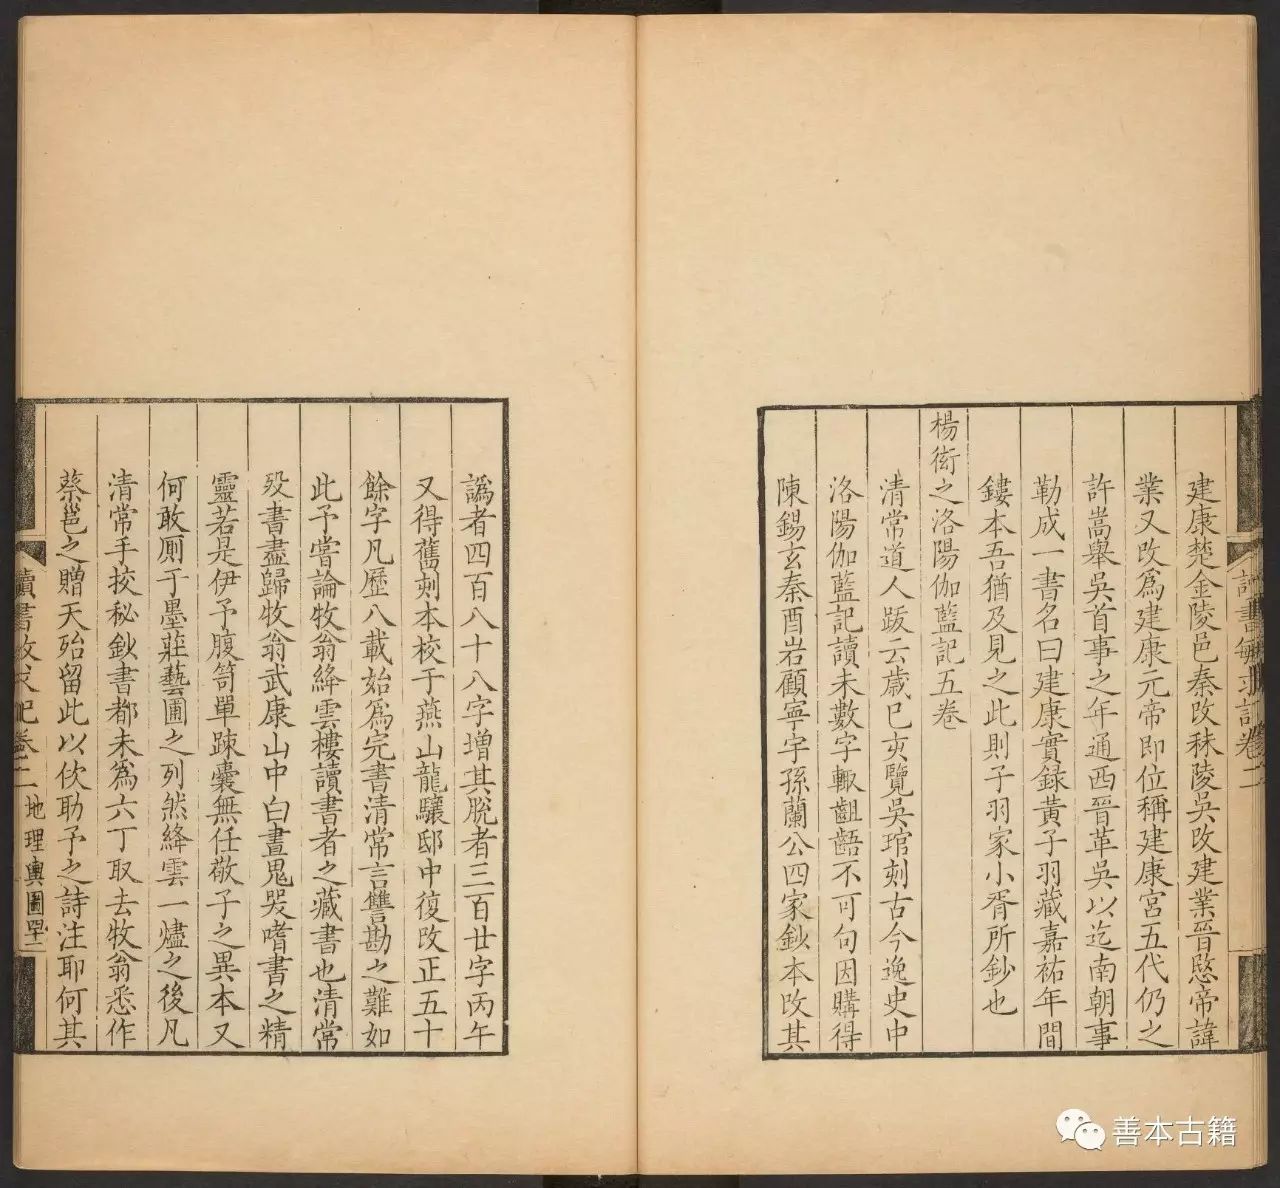 建康楚金陵邑秦改秣陵吳改建業晉愍帝諱
業又改爲建康元帝即位稱建康宮五代仍之
許嵩舉吳首事之年通西晉革吳以迄南朝事
勒成一書名曰建康實録黃子羽藏嘉祐年間
鏤本吾猶及見之此則子羽家小胥所鈔也
楊衒之洛陽伽藍記五卷
清常道人跋云歲己亥覽吳琯刻古今逸史中
洛陽伽藍記讀未數字輙齟齬不可句因購得
陳錫玄秦酉岩顧寧宇孫蘭公四家鈔本改其
譌者四百八十八字增其脫者三百廿字丙午
又得舊刻本校于燕山龍驤邸中復改正五十
餘字凡歷八載始爲完書清常言讐勘之難如
此予嘗論牧翁絳雲樓讀書者之藏書也清常
歿書盡歸牧翁武康山中白晝鬼哭嗜書之精
靈若是伊予腹笥單踈囊無任敬子之異本又
何敢厠于墨莊藝圃之列然絳雲一燼之後凡
清常手挍秘鈔書都未爲六丁取去牧翁悉作
蔡邕之贈天殆留此以佽助予之詩注耶何其
讀書敏求記卷二
地理輿圖
讀書敏求記卷二
善本古籍